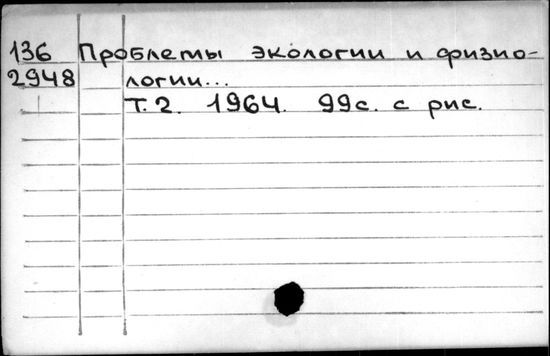 136 Проблемы экологии и физио-
2948 логии...
Т. 2. 1964. 99с. с рис.